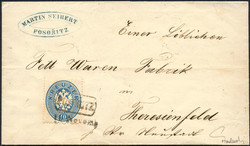 MARTIN NEIBERT
POSOŘITZ
Einer Löblichen
Fett Waren Fabrik
in
Theresienfeld
Neustadt
10